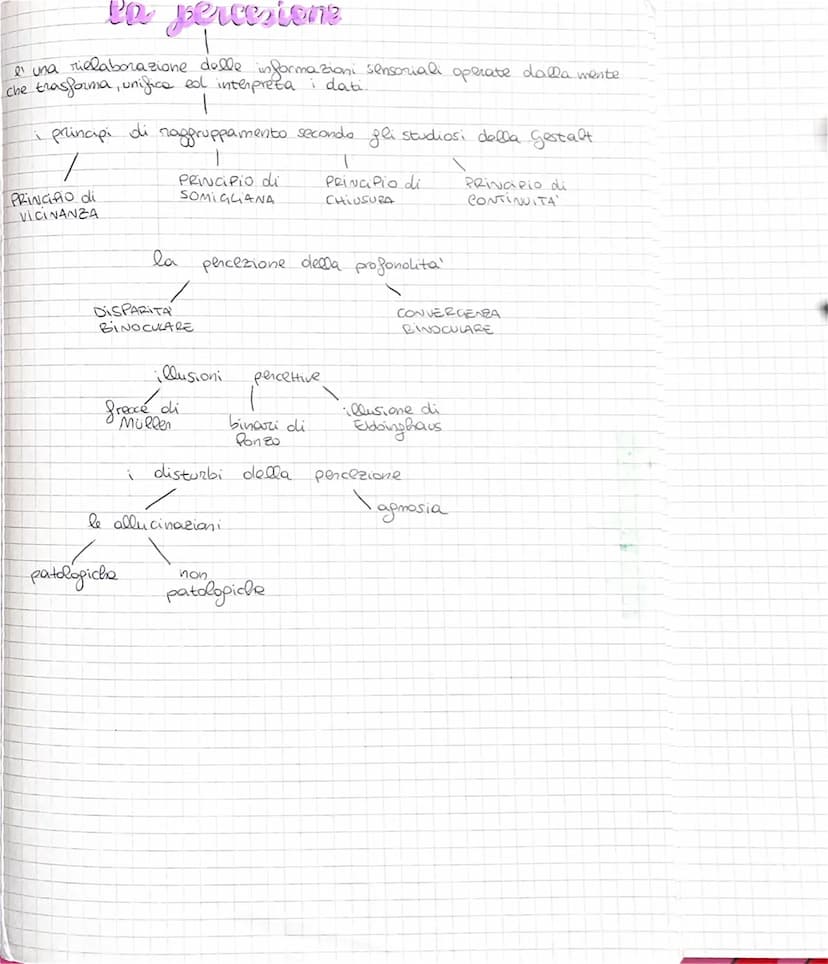 la percezione
è una rielaborazione delle informazioni sensoriali operate dalla mente
che trasforma, unifica ed interpreta i dati.
i principi di raggruppamento secondo gli studiosi della Gestalt
PRINCIPIO di VICINANZA
PRINCIPIO di SOMIGLIANA
PRINCIPIO di CHIUSURA
PRINCIPIO di CONTINUITA'
la percezione della profondita'
DISPARITA' BINOCULARE
CONVERGENZA BINOCULARE
illusioni percettive
frecce di Müller
binari di Ponzo
illusione di Ebbinghaus
i disturbi della percezione
le allucinazioni
agnosia
patologiche
non patologiche